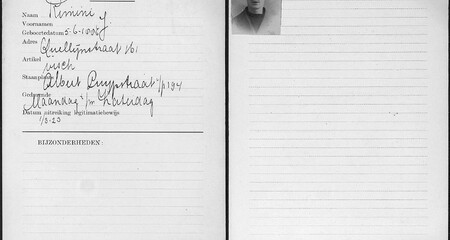 Naam Rimini
Voornamen J
Geboortedatum 5-6-1888
Adres Quellijnstraat 161
Artikel visch
Staanplaats Albert Cuypstraat t/o 194
Gedurende
Maandag t/m Zaterdag
Datum uitreiking legitimatiebewijs
1/5-23
BIJZONDERHEDEN: